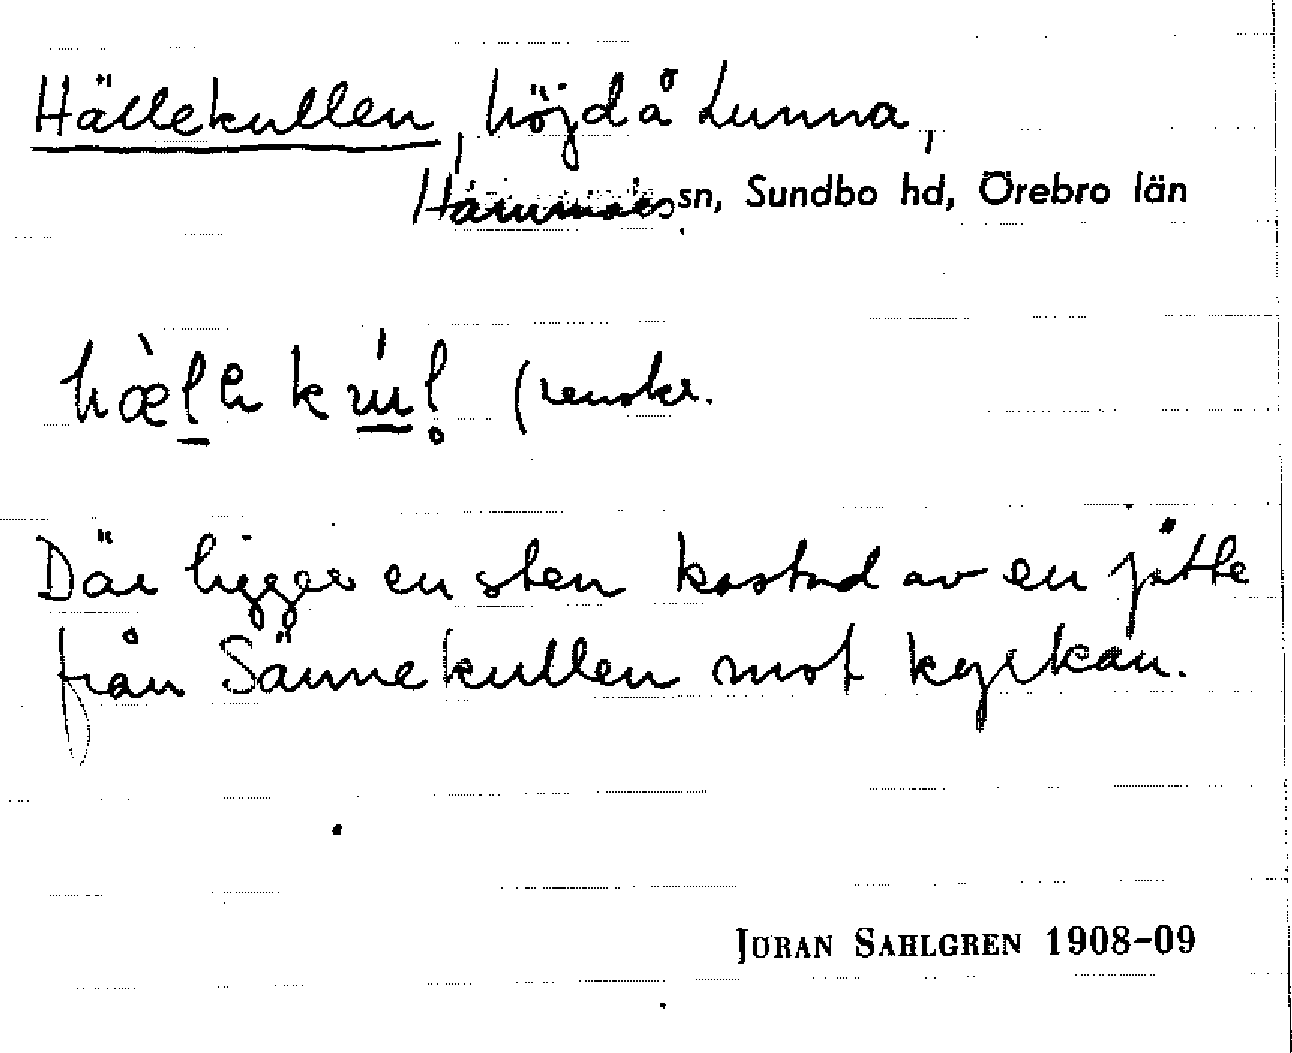 Hällekullen, höjd å Lunna,
Hammars sn, Sundbo hd, Örebro län
(renskr.
Där ligger en sten kastad av en jätte
från Sännekullen mot kyrkan.
JÖRAN SAHLGREN 1908-09